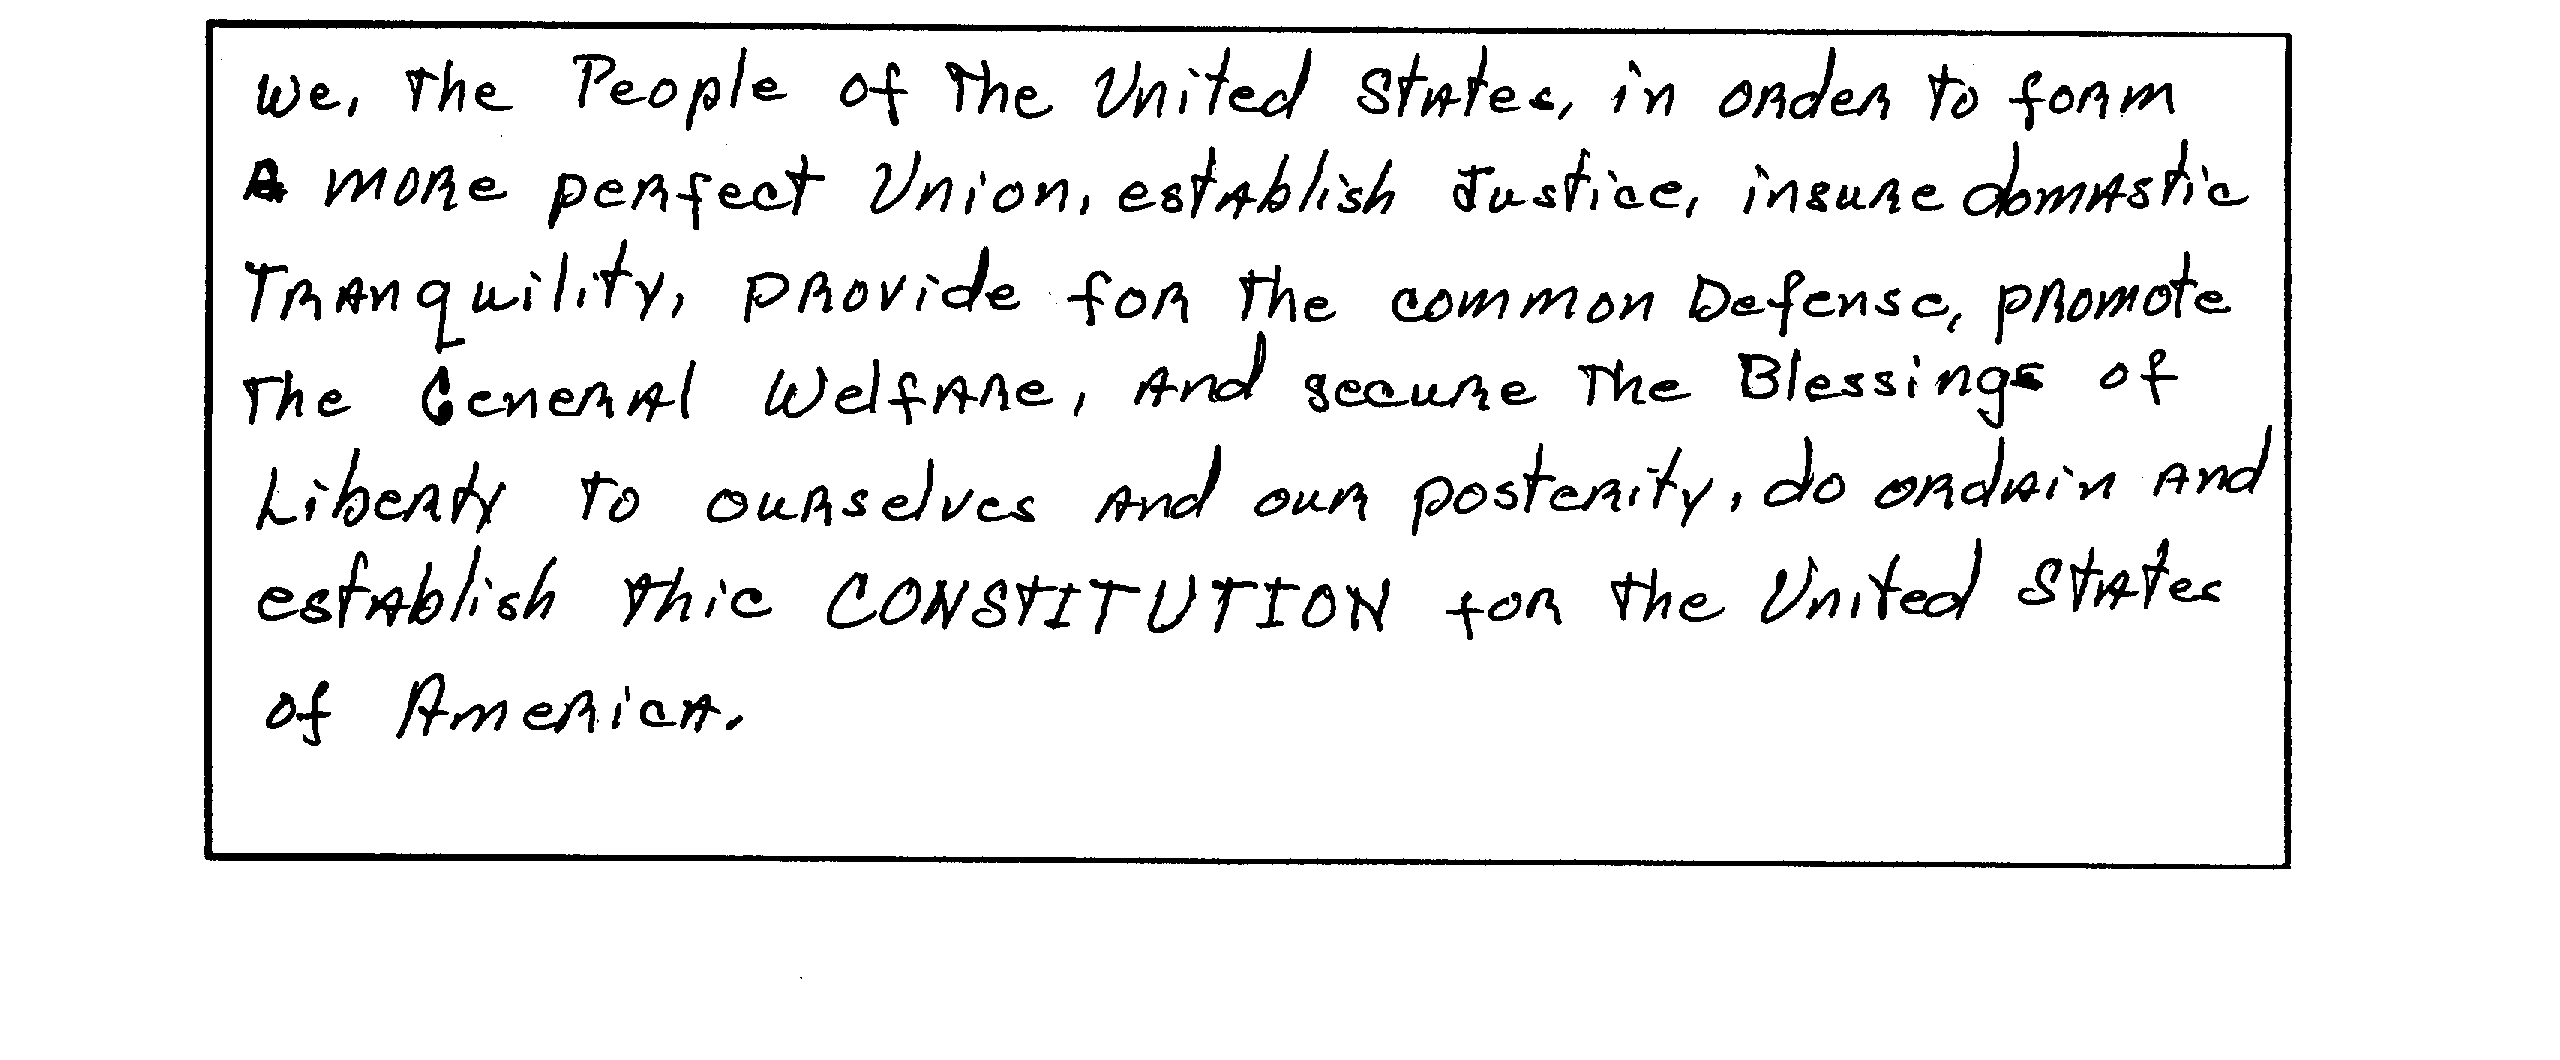 We, the People of the United States, in order to form
A more perfect Union, establish Justice, insure domastic
Tranquility, provide for the common Defense, promote
the General Welfare, and secure the Blessings of
Liberty to ourselves and our posterity, do ordain and
establish this CONSTITUTION for the United States
of America.